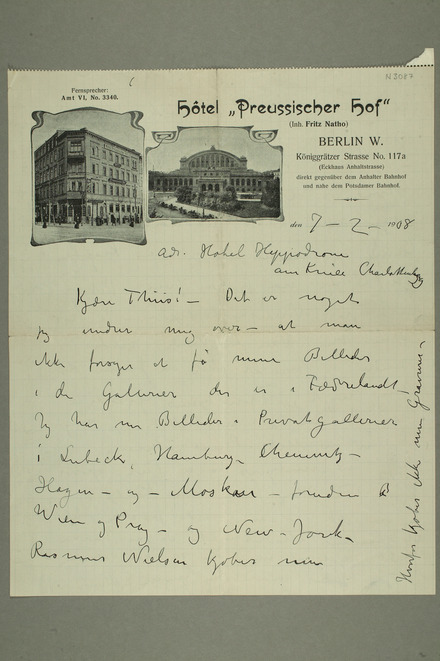 N 3087
Fernsprecher:
Amt VI, No. 3340.
Hôtel „Preussischer Hof“
(Inh. Fritz Natho)
BERLIN W.
Königgrätzer Strasse No. 117a
(Eckhaus Anhaltstrasse)
direkt gegenüber dem Anhalter Bahnhof
und nahe dem Potsdamer Bahnhof.
den 7 – 2 – 1908
adr. Hotel Hippodrom
am Kniee Charlottenbg
Kjære Thiis! – Det er noget
jeg undrer mig over – at man
ikke forsøger at få mine Billeder
i de Gallerier der er i Fædrelandet –
Jeg har nu Billeder i Privatgallerier
i Lubeck, Hamburg, Chemnitz –
Hagen – og – Moskau – foruden i
Wien og Prag – og New-Jork –
Rasmus Nielsen kjøber min
kjøber ikke min